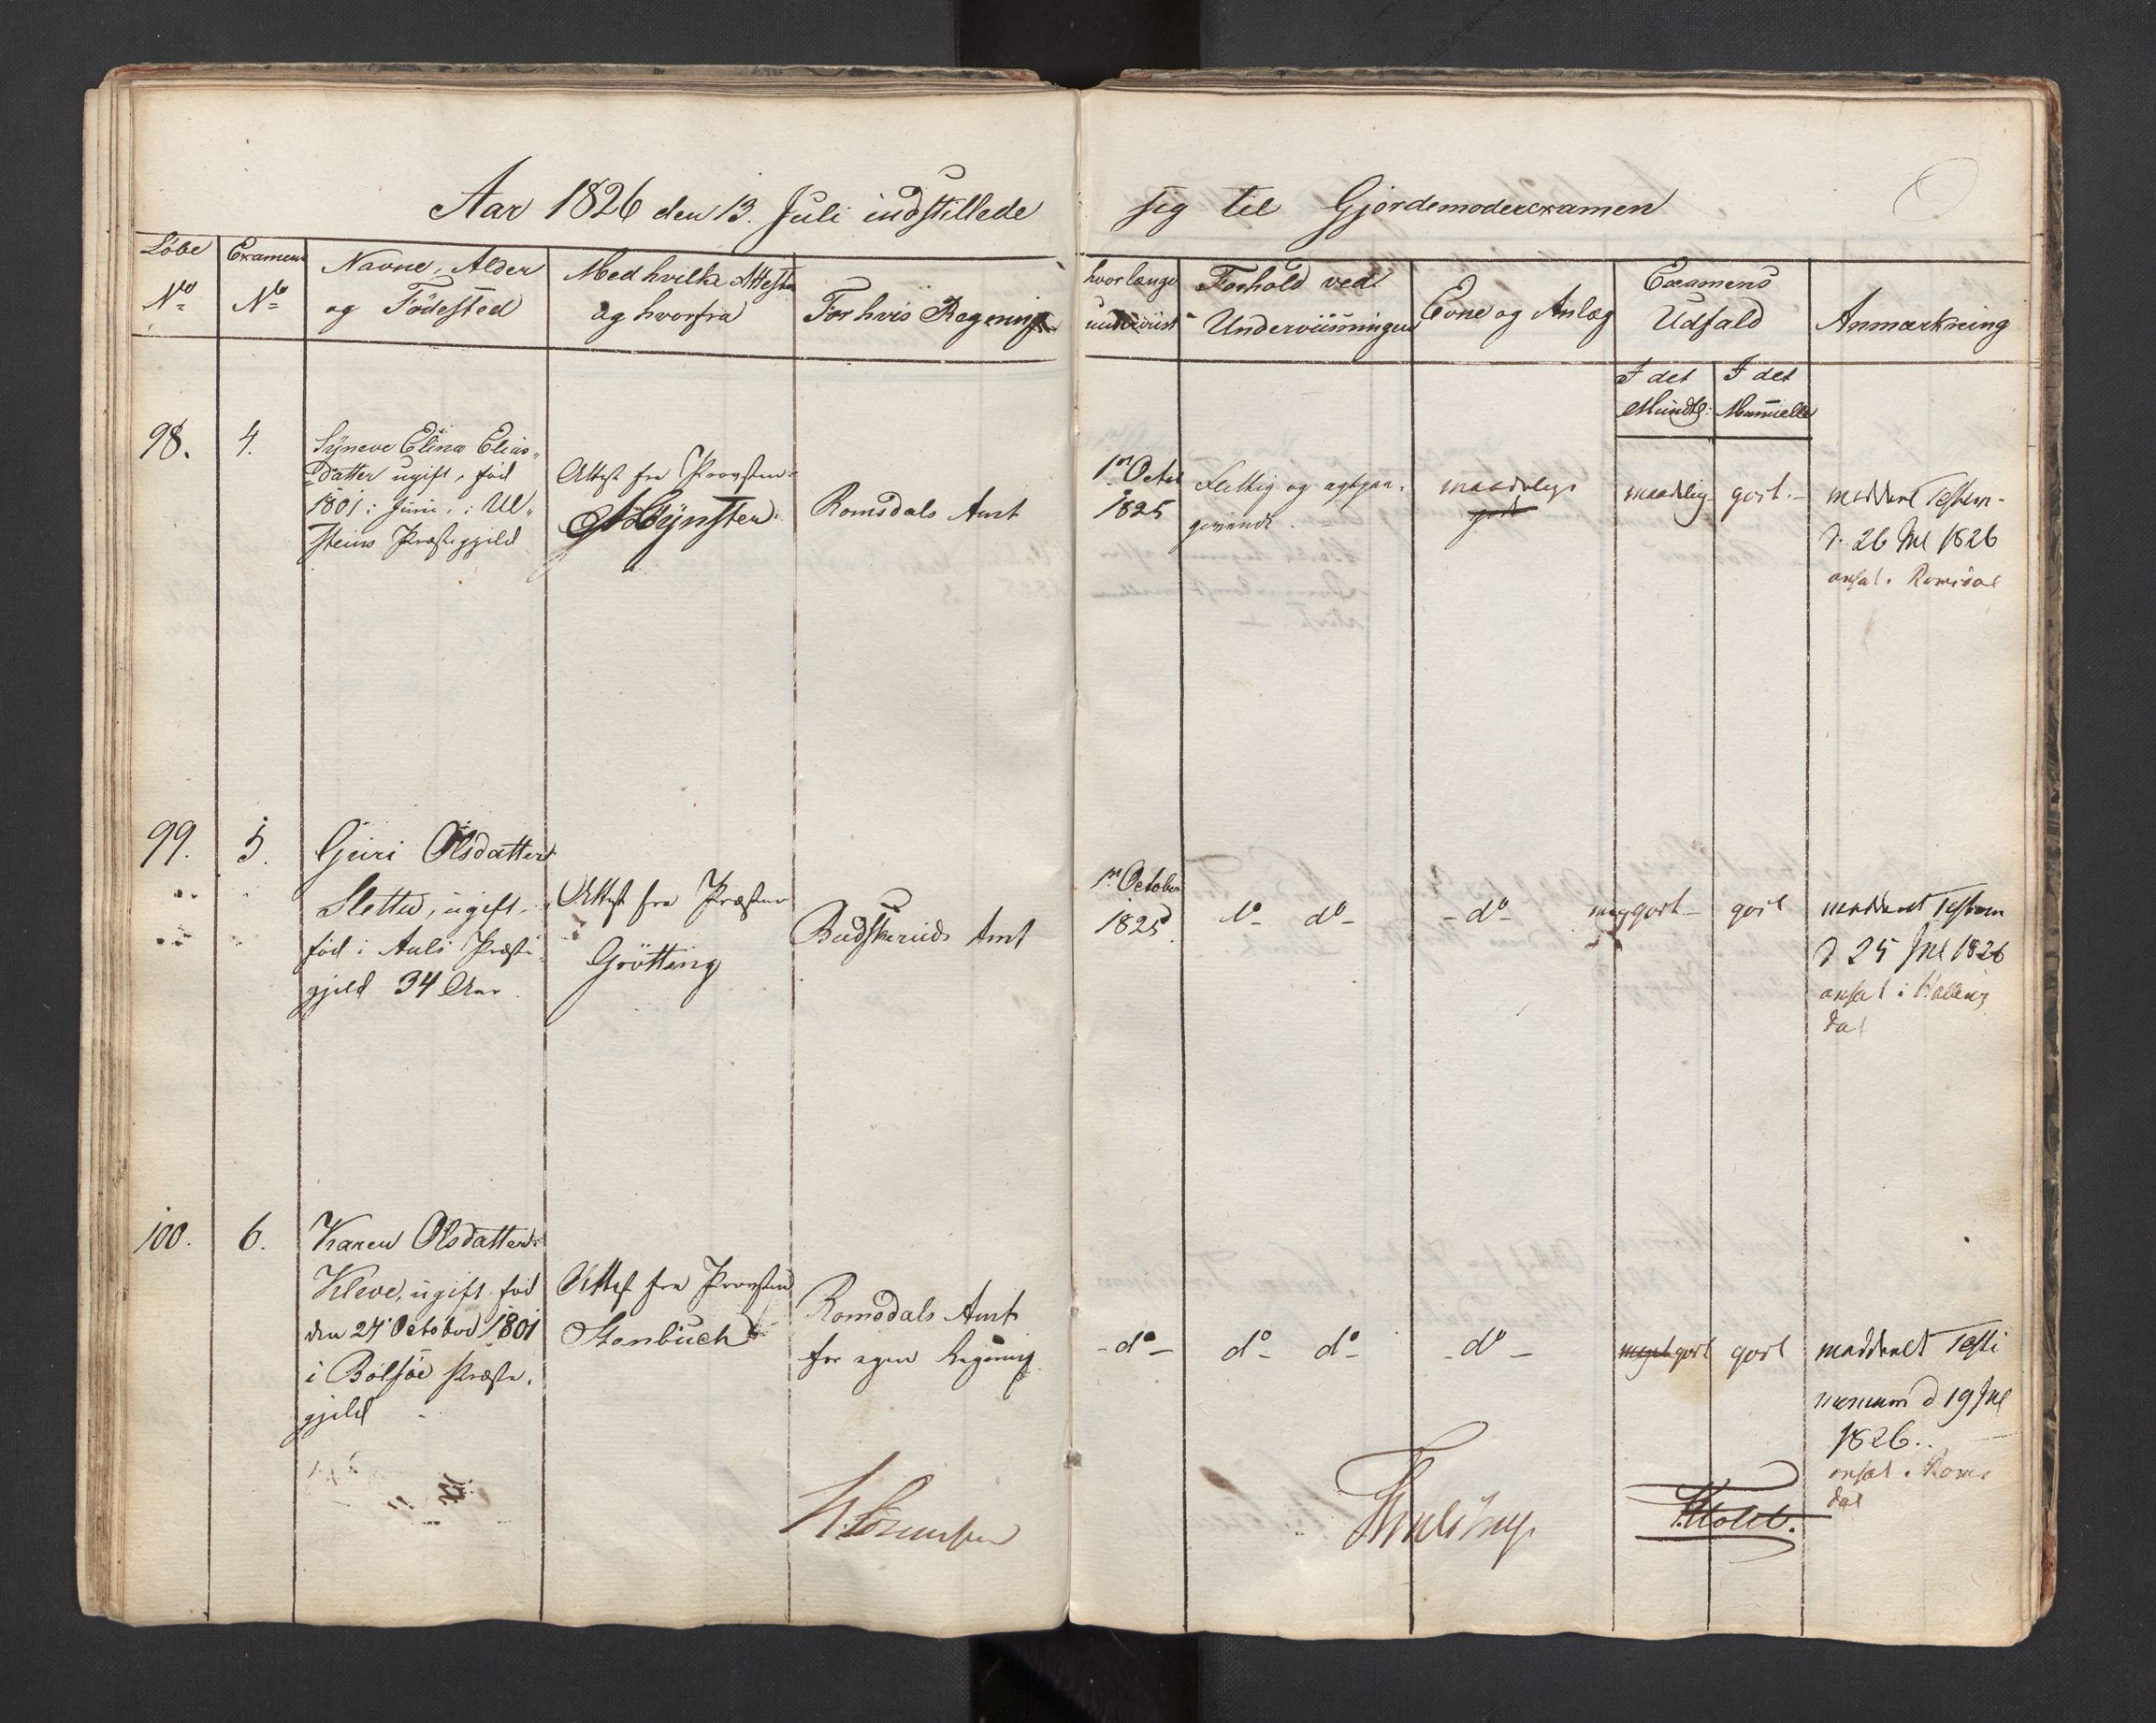 Aar 1826 den 13. Juli indstillede sig til Gjordemoderexamen
Löbe No
Examens No
Navne, Alder
og Födested
Med hvilke Attester
og hvorfra
For hvis Regning
hvorlænge
underviist
Forhold ved
Underviisningen
Evne og Anlæg
Examens
Udfald
I det
Mundtl:
I det
Manuelle
Anmærkning
98.
4.
Syneve Elina Elias-
datter ugift, föd
1801 i Juni, i Ul-
steins Præstegjeld
Attest fra Provsten
Mynster.
Romsdals Amt
1n Octob
1825
Flittig og agtpaa-
givende.
maadelige
god
maadelig
godt.-
meddeelt Testem-
d. 26 Jul 1826
ansat i Romsdal
99.
5.
Guri Olsdatter
Slette, ugift,
föd i Aals Præste-
gjeld 34 Aar
Attest fra Præsten
Grötting
Budskeruds Amt
1n October
1825
do do-
-do-
meg godt-
godt
meddeelt Testem
d 25 Jul 1826
ansat i Halling
dal
100.
6.
Karen Olsdatter
Kleve, ugift föd
den 24 October 1801
i Bolsöe Præste-
gjeld
Attest fra Provsten
Stenbuch
Romsdals Amt
for egen Regning
-do-
do- do-
-do-
meget godt
godt
meddeelt Testi
monium d 19 Jul
1826.
ansat i Roms
dal
N. Sörenssen
Thulstrup
Holst.